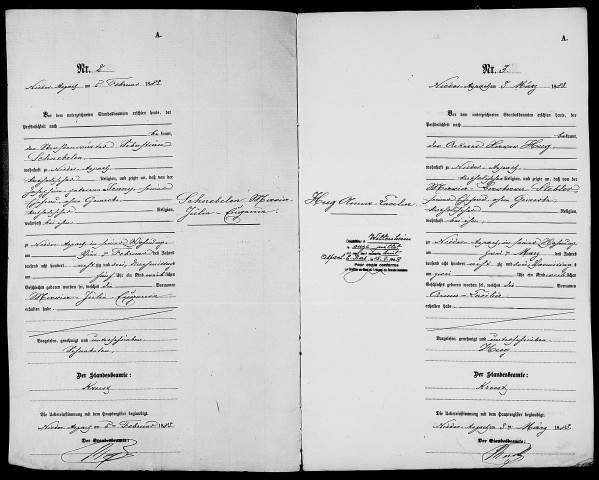 A.
Nr. 2
Nieder-Aspach am 5. Februar 1883
Vor dem unterzeichneten Standesbeamten erschien heute, der
Persönlichkeit nach
bekannt,
der Sebastian
Schnebelen
wohnhaft zu Nieder-Aspach
katholischer Religion, und zeigte an, daß von der
Jenny, seiner
Ehefrau, ohne Gewerbe
katholischer Religion,
wohnhaft bei ihm
zu Nieder-Aspach in seiner Wohnung
am Februar des Jahres
tausend acht hundert achtzig und drei, Nachmittags
um fünf Uhr ein Kind weiblichen
Geschlechts geboren worden sei, welches die Vornamen
Maria Julia Eugenia
erhalten habe.
Vorgelesen, genehmigt und unterschrieben
Schnebelen.
Der Standesbeamte:
Die Uebereinstimmung mit dem Hauptregister beglaubigt.
Nieder-Aspach am 5. Februar 1883
Der Standesbeamte:
Schnebelen Maria
Julia Eugenia
Hug Anna Cäcilia
Wittenheim
Pour copie conforme
A.
Nr. 3.
Nieder-Aspach am März 1883
Vor dem unterzeichneten Standesbeamten erschien heute, der
Persönlichkeit nach
bekannt,
der Ackerer Hug
wohnhaft zu Nieder-Aspach
katholischer Religion, und zeigte an, daß von der
Maria Stebler
seiner Ehefrau ohne Gewerbe
katholischer Religion,
wohnhaft bei ihm
zu Nieder-Aspach in seiner Wohnung
am März des Jahres
tausend acht hundert achtzig und drei Vormittags
um zwei Uhr ein Kind weiblichen
Geschlechts geboren worden sei, welches die Vornamen
Anna Cäcilia
erhalten habe.
Vorgelesen, genehmigt und unterschrieben
Hug
Der Standesbeamte:
Die Uebereinstimmung mit dem Hauptregister beglaubigt.
Nieder-Aspach am März 1883
Der Standesbeamte: